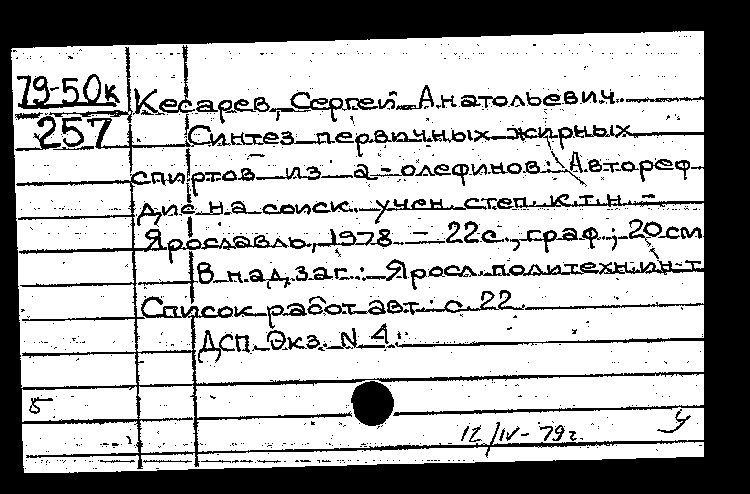 79-50к
257
Кесарев, Сергей Анатольевич.
Синтез первичных жирных
спиртов из а-олефинов: Автореф
дис на соиск. учен. степ. к.т.н. -
Ярославль, 1978 - 22с., граф.; 20см
В над.заг.: Яросл. политехн. ин-т
Список работ авт: с. 22.
ДСП. Экз. N 4.
5
12/IV-79г.